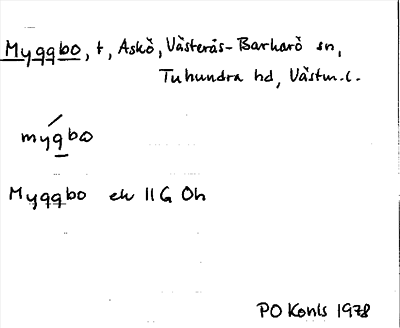 Myggbo, t, Askö, Västerås-Barkarö sn,
Tuhundra hd, Västm.l.
mygbo
Myggbo ek 11G Oh
PO Konls 1978